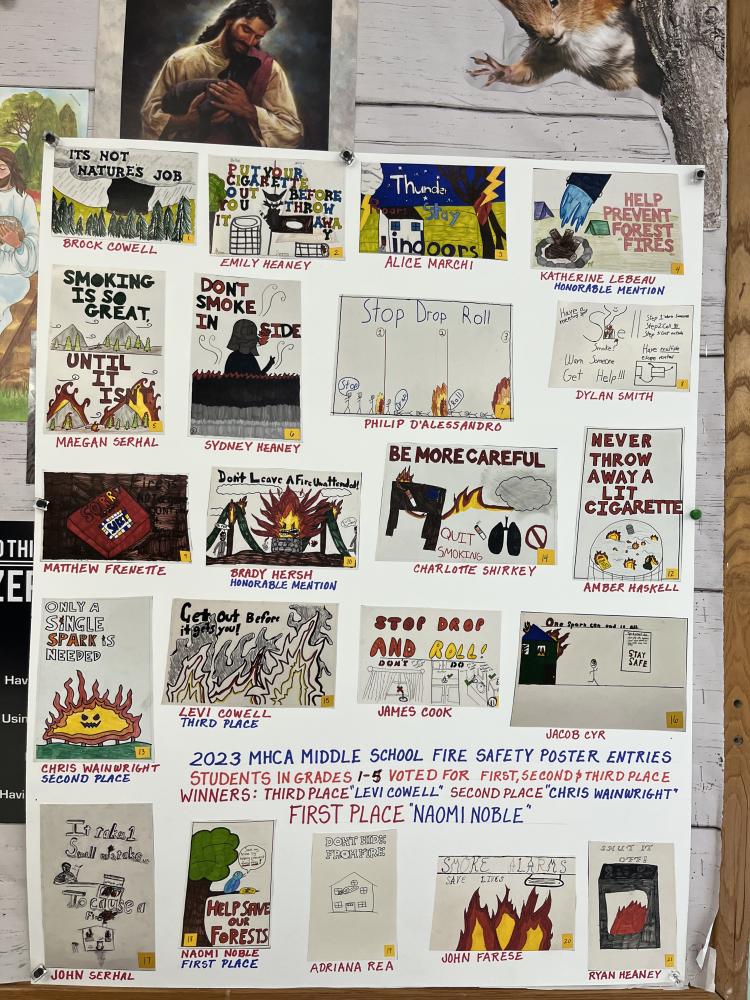 ITS NOT
NATURES JOB
1
BROCK COWELL
PUT YOUR
CIGARETTE
OUT BEFORE
YOU THROW
IT AWAY
2
EMILY HEANEY
Thunder
Roars
Stay
indoors
3
ALICE MARCHI
HELP
PREVENT
FOREST
FIRES
4
KATHERINE LEBEAU
HONORABLE MENTION
SMOKING
IS SO
GREAT,
UNTIL
IT
ISN
5
MAEGAN SERHAL
DONT
SMOKE
IN SIDE
6
SYDNEY HEANEY
Stop Drop Roll
1
2
3
Stop
Roll
7
PHILIP D'ALESSANDRO
Smell
Smoke?
Warn Someone
Get Help!!!
Have multiple
8
DYLAN SMITH
SORRY
9
MATTHEW FRENETTE
Don't Leave A Fire Unattended!
10
BRADY HERSH
HONORABLE MENTION
BE MORE CAREFUL
QUIT
SMOKING
14
CHARLOTTE SHIRKEY
NEVER
THROW
AWAY A
LIT
CIGARETTE
12
AMBER HASKELL
ONLY A
SINGLE
SPARK IS
NEEDED
13
CHRIS WAINWRIGHT
SECOND PLACE
Get Out Before
it gets you!
15
LEVI COWELL
THIRD PLACE
STOP DROP
AND ROLL!
DON'T
DO
11
JAMES COOK
One Spark can end it all
STAY
SAFE
16
JACOB CYR
2023 MHCA MIDDLE SCHOOL FIRE SAFETY POSTER ENTRIES
STUDENTS IN GRADES 1-5 VOTED FOR FIRST, SECOND & THIRD PLACE
WINNERS: THIRD PLACE "LEVI COWELL" SECOND PLACE "CHRIS WAINWRIGHT"
FIRST PLACE "NAOMI NOBLE"
It takes 1
Small mistake
To cause a
17
JOHN SERHAL
HELP SAVE
OUR
FORESTS
18
NAOMI NOBLE
FIRST PLACE
DONT HIDE
FROM FIRE
19
ADRIANA REA
SMOKE ALARMS
SAVE LIVES
20
JOHN FARESE
SHUT IT
OFF!
21
RYAN HEANEY
Hav
Usin
Havi